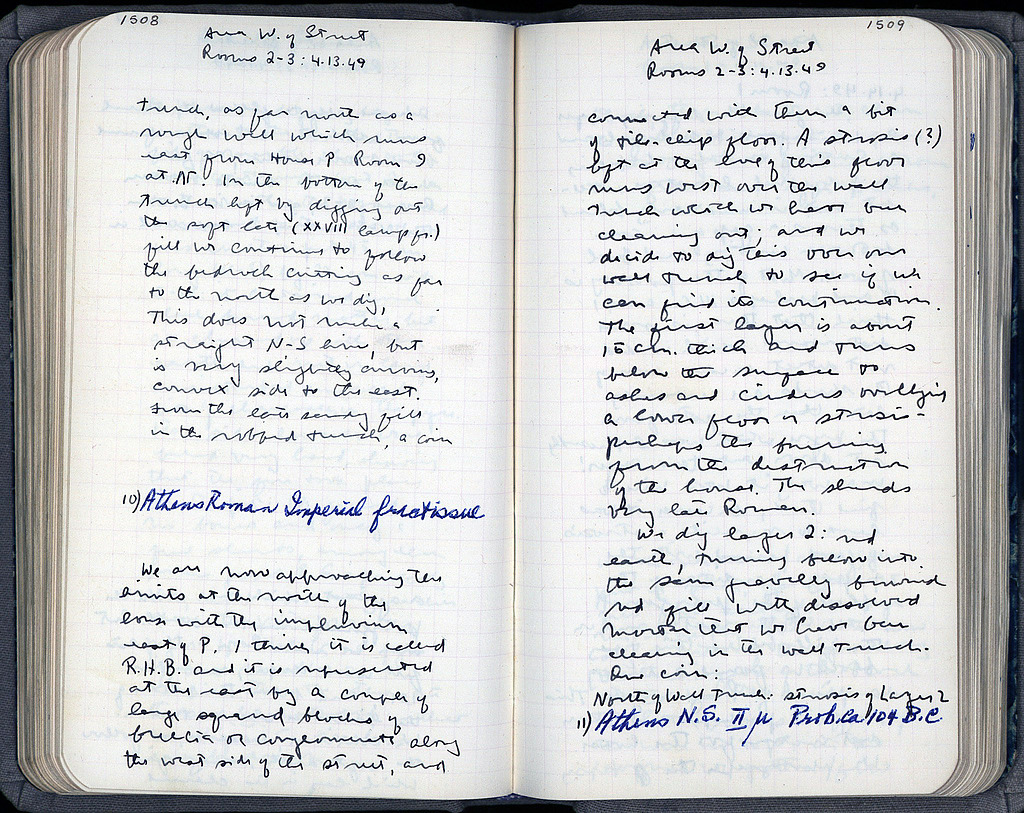 1508
Area W. of Street
Rooms 2-3: 4.13.49
trench, as far north as a
rough wall which runs
east from House P Room 9
at N. In the bottom of the
trench left by digging out
the soft late (XXVIII lamp fr.)
fill we continue to follow
the bedrock cutting as far
to the north as we dig.
This does not make a
straight N-S line, but
is very slightly curving,
convex side to the east.
From the late sandy fill
in the robbed trench, a coin
10) Athens Roman Imperial fractissue
We are now approaching the
limits at the north of the
house with the impluvium
east of P. I think it is called
R.H.B. and it is represented
at the east by a couple of
large squared blocks of
breccia or conglomerate along
the west side of the street, and
1509
Area W. of Street
Rooms 2-3: 4.13.49
connected with them a bit
of tile-chip floor. A strosis (?)
left at the level of this floor
runs west over the wall
trench which we have been
cleaning out; and we
decide to dig this over our
wall trench to see if we
can find its continuation.
The first layer is about
15 cm. thick and turns
below the surface to
ashes and cinders overlying
a lower floor or strosis -
perhaps the burning
from the destruction
of the house. The sherds
very late Roman.
We dig layer 2: red
earth, turning below into
the same gravelly
red fill with dissolved
mortar that we have been
clearing in the wall trench.
One coin:
North of Wall Trench. strosis of Layer 2
11) Athens N.S. II µ Prob. ca. 104 B.C.